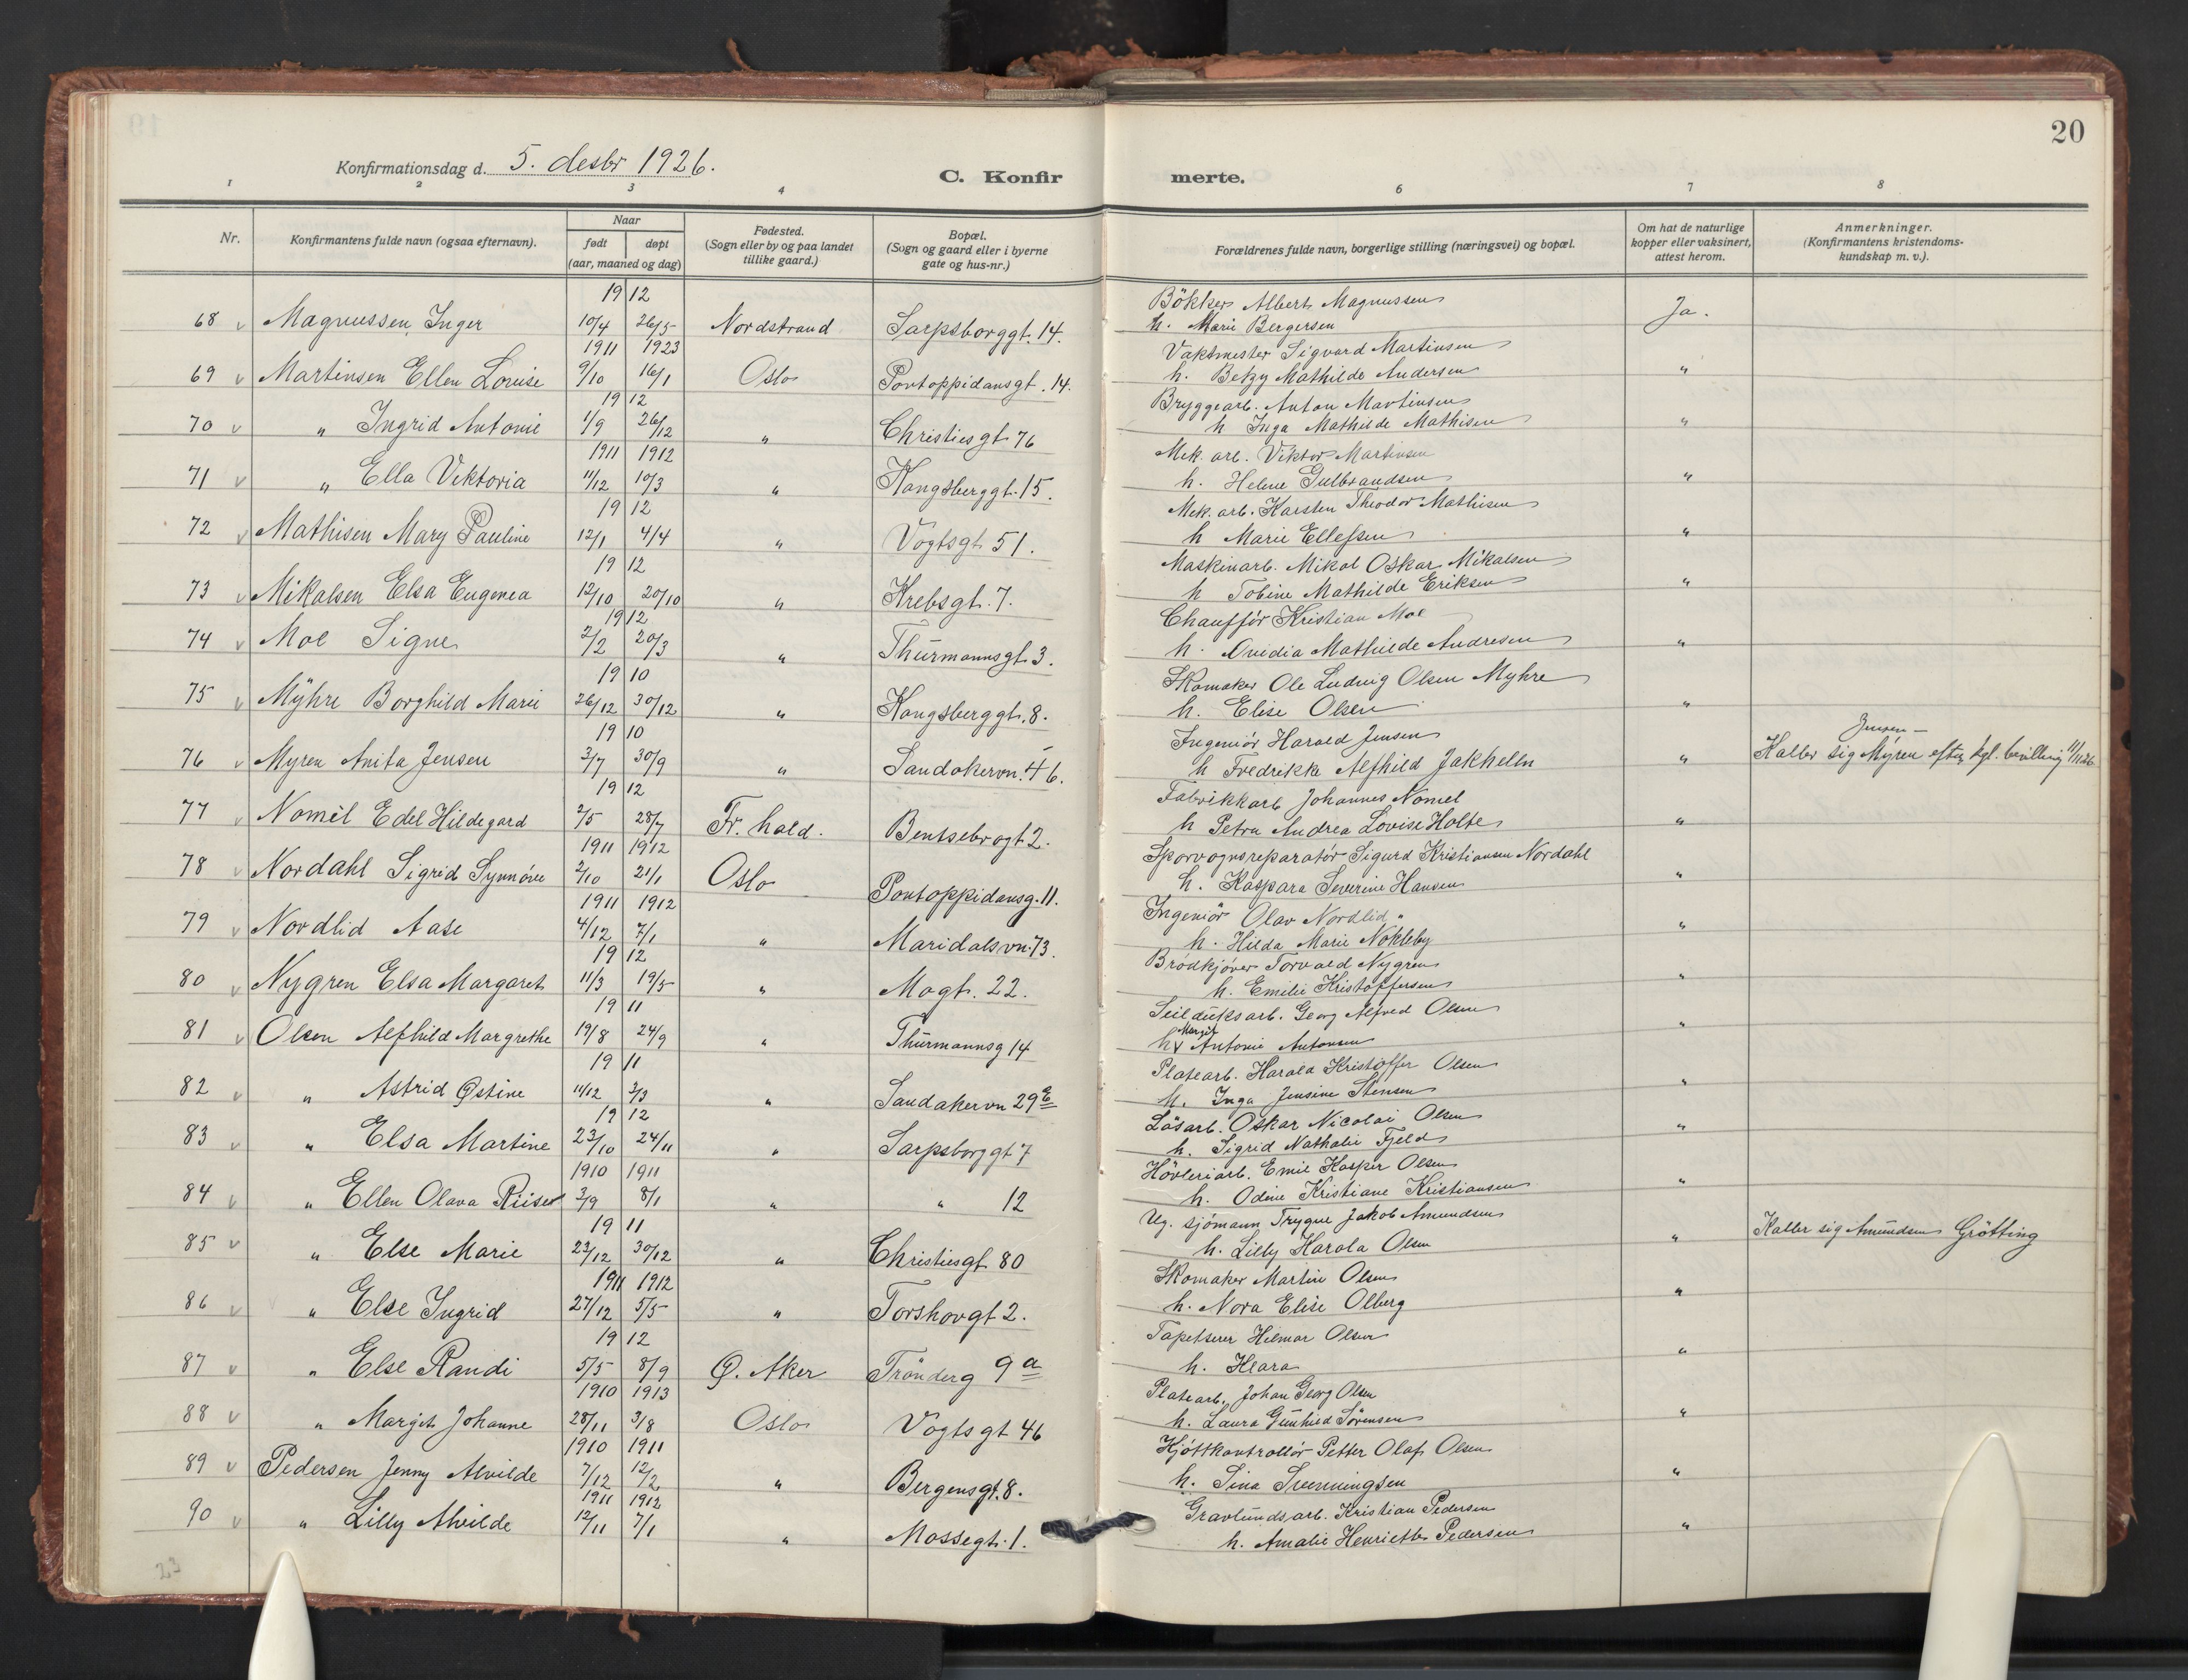 20
Konfirmationsdag d. 5. desbr 1926.
C. Konfirmerte.
1 2 3 4 6 7 8
Nr.
Konfirmantens fulde navn (ogsaa efternavn).
Naar
født døpt
(aar, maaned og dag)
Fødested.
(Sogn eller by og paa landet
tillike gaard.)
Bopæl.
(Sogn og gaard eller i byerne
gate og hus-nr.)
Forældrenes fulde navn, borgerlige stilling (næringsvei) og bopæl.
Om hat de naturlige
kopper eller vaksinert,
attest herom.
Anmerkninger.
(Konfirmantens kristendoms-
kundskap m. v.).
19 12 Bökker Albert Magnussen
68 v Magnussen, Inger 10/4 26/5 Nordstrand Sarpsborggt. 14. h. Marie Bergersen Ja.
1911 1923 Vaktmester Sigvard Martinsen
69 v Martinsen Ellen Lovise 9/10 16/1 Oslo Pontoppidansgt. 14. h. Betzy Mathilde Andersen "
19 12 Bryggearb. Anton Martinsen
70 v " Ingrid Antonie 1/9 26/12 " Christiesgt 76 h Inga Mathilde Mathisen "
1911 1912 Mek. arb. Viktor Martinsen
71 v " Ella Viktoria 11/12 10/3 " Kongsberggt. 15. h. Helene Gulbrandsen "
19 12 Mek. arb. Karsten Theodor Mathisen
72 v Mathisen Mary Pauline 12/1 4/4 " Vogtsgt 51. h Marie Ellefsen "
19 12 Maskinarb. Mikal Oskar Mikalsen
73 v Mikalsen Elsa Eugenea 12/10 20/10 " Krebsgt. 7. h Tobine Mathilde Eriksen "
19 12 Chauffør Kristian Moe
74 v Moe Signe 2/2 20/3 " Thurmannsgt. 3. h. Ovidia Mathilde Andresen "
19 10 Skomaker Ole Ludvig Olsen Myhre
75 v Myhre Borghild Marie 26/12 30/12 " Kongsberggt. 8. h. Elise Olsen "
19 10 Ingeniör Harald Jensen Jensen –
76 v Myren Anita Jensen 3/7 30/9 " Sandakervn. 46. h Fredrikke Alfhild Jakhelln " Kaller sig Myren efter kgl. bevilling 11/11 26
19 12 Fabrikkarb Johannes Nomel
77 v Nomèl Edel Hildegard 2/5 28/7 Fr. hald. Bentsebrogt 2. h Petra Andrea Lovise Holte "
1911 1912 Sporvognsreparatör Sigurd Kristiansen Nordahl
78 v Nordahl Sigrid Synnöve 2/10 21/1 Oslo Pontoppidansg. 11. h. Kaspara Severine Hansen "
1911 1912 Ingeniör Olav Nordlid
79 v Nordlid Aase 4/12 7/1 " Maridalsvn. 73. h. Hilda Marie Nokleby "
19 12 Brödkjörer Torvald Nygren
80 v Nygren Elsa Margaret 11/3 19/5 " Mogt. 22. h. Emilie Kristoffersen "
19 11 Seilduksarb. Georg Alfred Olsen
81 v Olsen Alfhild Margrethe 19/8 24/9 " Thurmannsg 14 h Margit Antonie Antonsen "
19 11 Platearb. Harald Kristoffer Olsen
82 v " Astrid Østine 11/12 3/3 " Sandakervn 29 h. Inga Jensine Stensen "
19 12 Lösarb. Oskar Nicolai Olsen
83 v " Elsa Martine 23/10 24/11 " Sarpsborggt 7 h. Sigrid Nathalie Fjeld "
1910 1911 Hövleriarb. Emil Kasper Olsen
84 v " Ellen Olava Riiser 3/9 8/1 " " 12 h. Odine Kristiane Kristiansen "
19 11 Ug. sjömann Trygve Jakob Amundsen
85 v " Else Marie 23/12 30/12 " Christiesgt. 80 h. Lilly Harola Olsen " Kaller sig Amundsen Grötting
1911 1912 Skomaker Martin Olsen
86 v " Else Ingrid 27/12 5/5 " Torshovgt 2. h. Nora Elise Olberg "
19 12 Tapetserer Hilmar Olsen
87 v " Else Randi 5/5 8/9 Ø. Aker Trönderg 9a h. Klara "
1910 1913 Platearb. Johan Georg Olsen
88 v " Margit Johanne 28/11 3/8 Oslo Vogts gt 46 h. Laura Gunhild Sörensen "
1910 1911 Kjöttkontrollör Petter Olaf Olsen
89 v Pedersen Jenny Alvilde 7/12 12/2 " Bergensgt. 8. h. Sina Svenningsen "
1911 1912 Gravlundsarb. Kristian Pedersen
90 v " Lilly Alvilde 12/11 7/1 " Mossegt. 1. h. Amalie Henriette Pedersen "
23